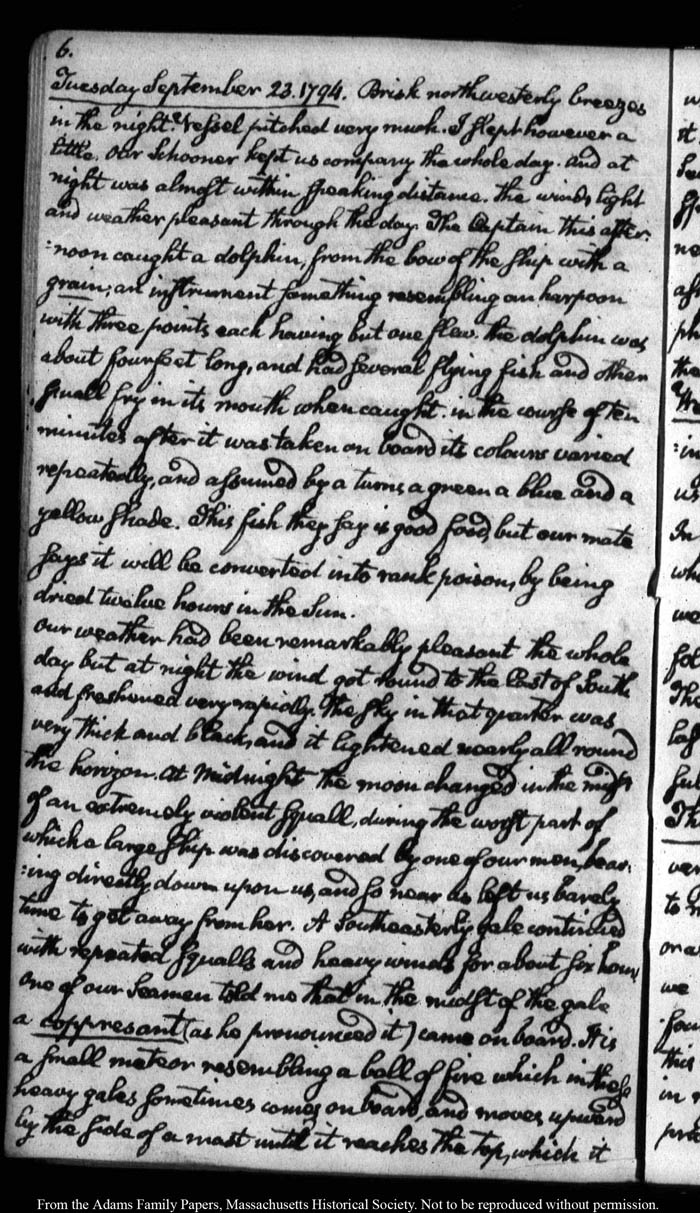 6.
Tuesday September 23. 1794. Brisk northwesterly breezes
in the night. Vessel pitched very much. I slept however a
little. Our Schooner kept us company the whole day. and at
night was almost within speaking distance. the winds light
and weather pleasant through the day. The Captain this after:
:noon caught a dolphin, from the bow of the ship with a
grain, an instrument something resembling an harpoon
with three points each having but one flew. the dolphin was
about four feet long, and had several flying fish and other
small fry in its mouth when caught. in the course of ten
minutes after it was taken on board its colours varied
repeatedly, and assumed by a turns a green a blue and a
yellow shade. This fish they say is good food, but our mate
says it will be converted into rank poison, by being
dried twelve hours in the Sun.
Our weather had been remarkably pleasant the whole
day but at night the wind got round to the East of South
and freshened very rapidly. The sky in that quarter was
very thick and black, and it lightened nearly all round
the horizon. at Midnight the moon changed in the midst
of an extremely violent squall, during the worst part of
which a large ship was discovered by one of our men, bear:
:ing directly down upon us, and so near as left us barely
time to get away from her. A Southeasterly gale continued
with repeated squalls and heavy winds for about six hours
one of our Seamen told me that in the midst of the gale
a coppresant (as he pronounced it) came on board. It is
a small meteor resembling a ball of fire which in these
heavy gales sometimes comes on board, and moves upward
by the side of a mast until it reaches the top, which it
From the Adams Family Papers, Massachusetts Historical Society. Not to be reproduced without permission.